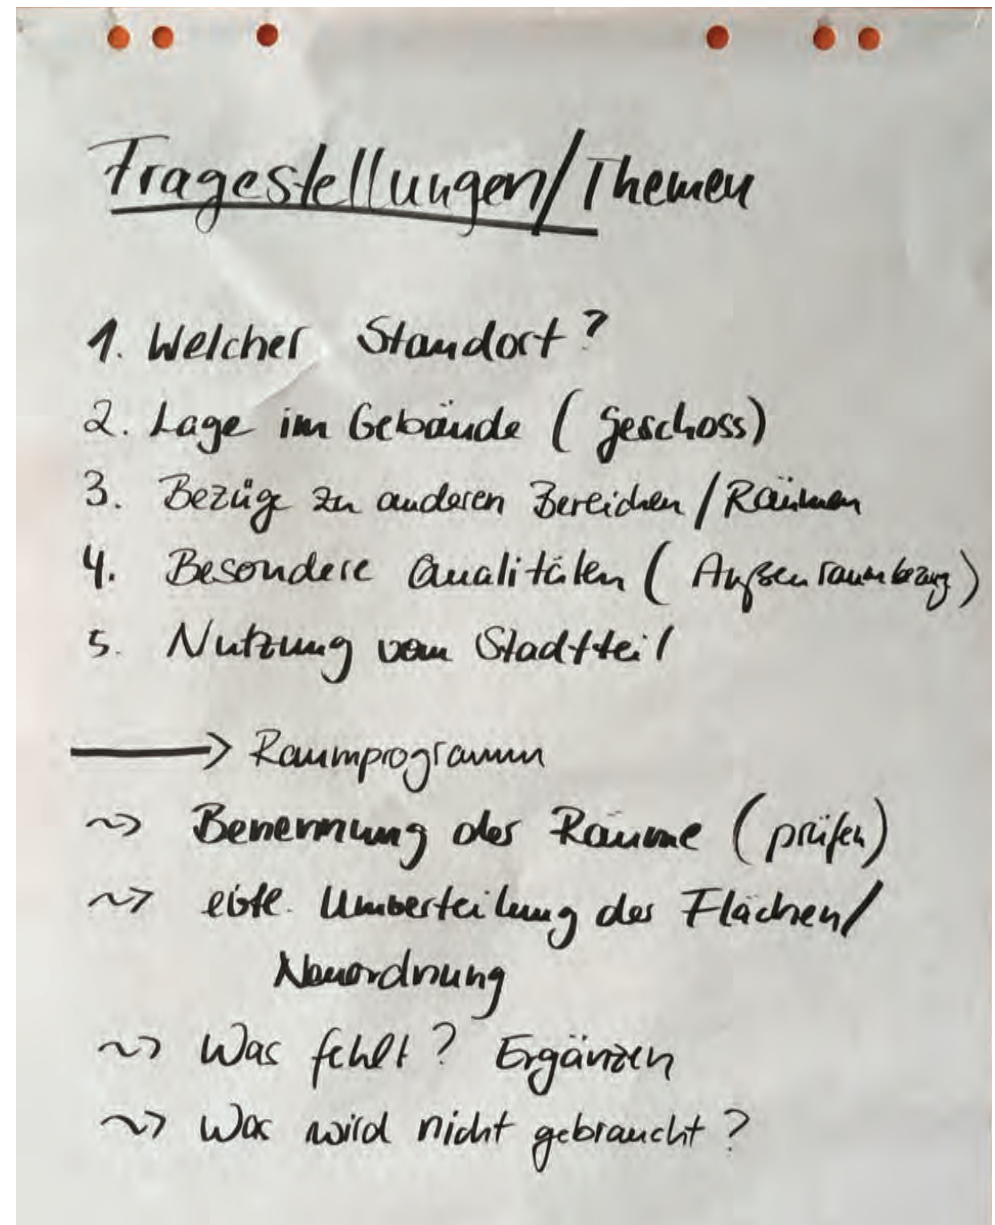 Fragestellungen/Themen
1. Welcher Standort?
2. Lage im Gebäude (Geschoss)
3. Bezüge zu anderen Bereichen/Räumen
4. Besondere Qualitäten (Außenraumbezug)
5. Nutzung vom Stadtteil
→ Raumprogramm
~> Benennung der Räume (prüfen)
~> evtl. Umverteilung der Flächen/
Neuordnung
~> Was fehlt? Ergänzen
~> Was wird nicht gebraucht?